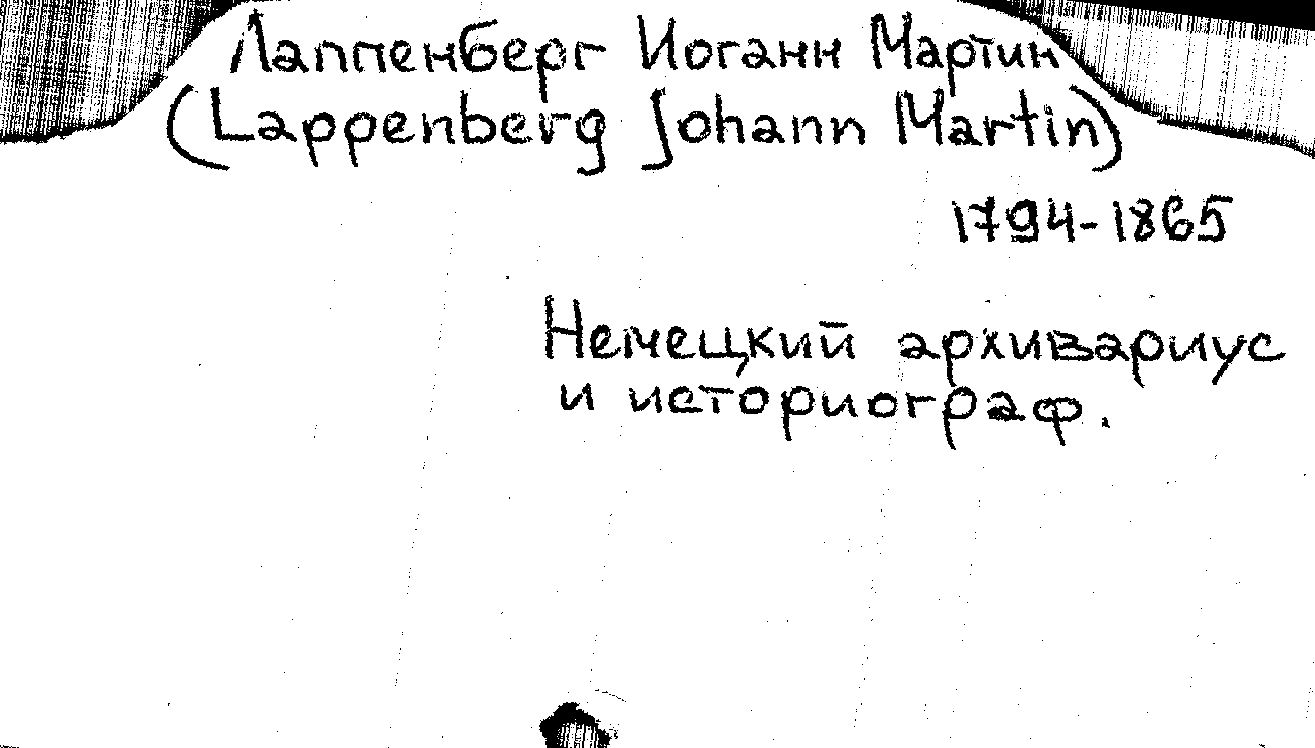 Лаппенберг Иоганн Мартин
(Lappenberg Johann Martin)
1794-1865
Немецкий архивариус
и историограф.